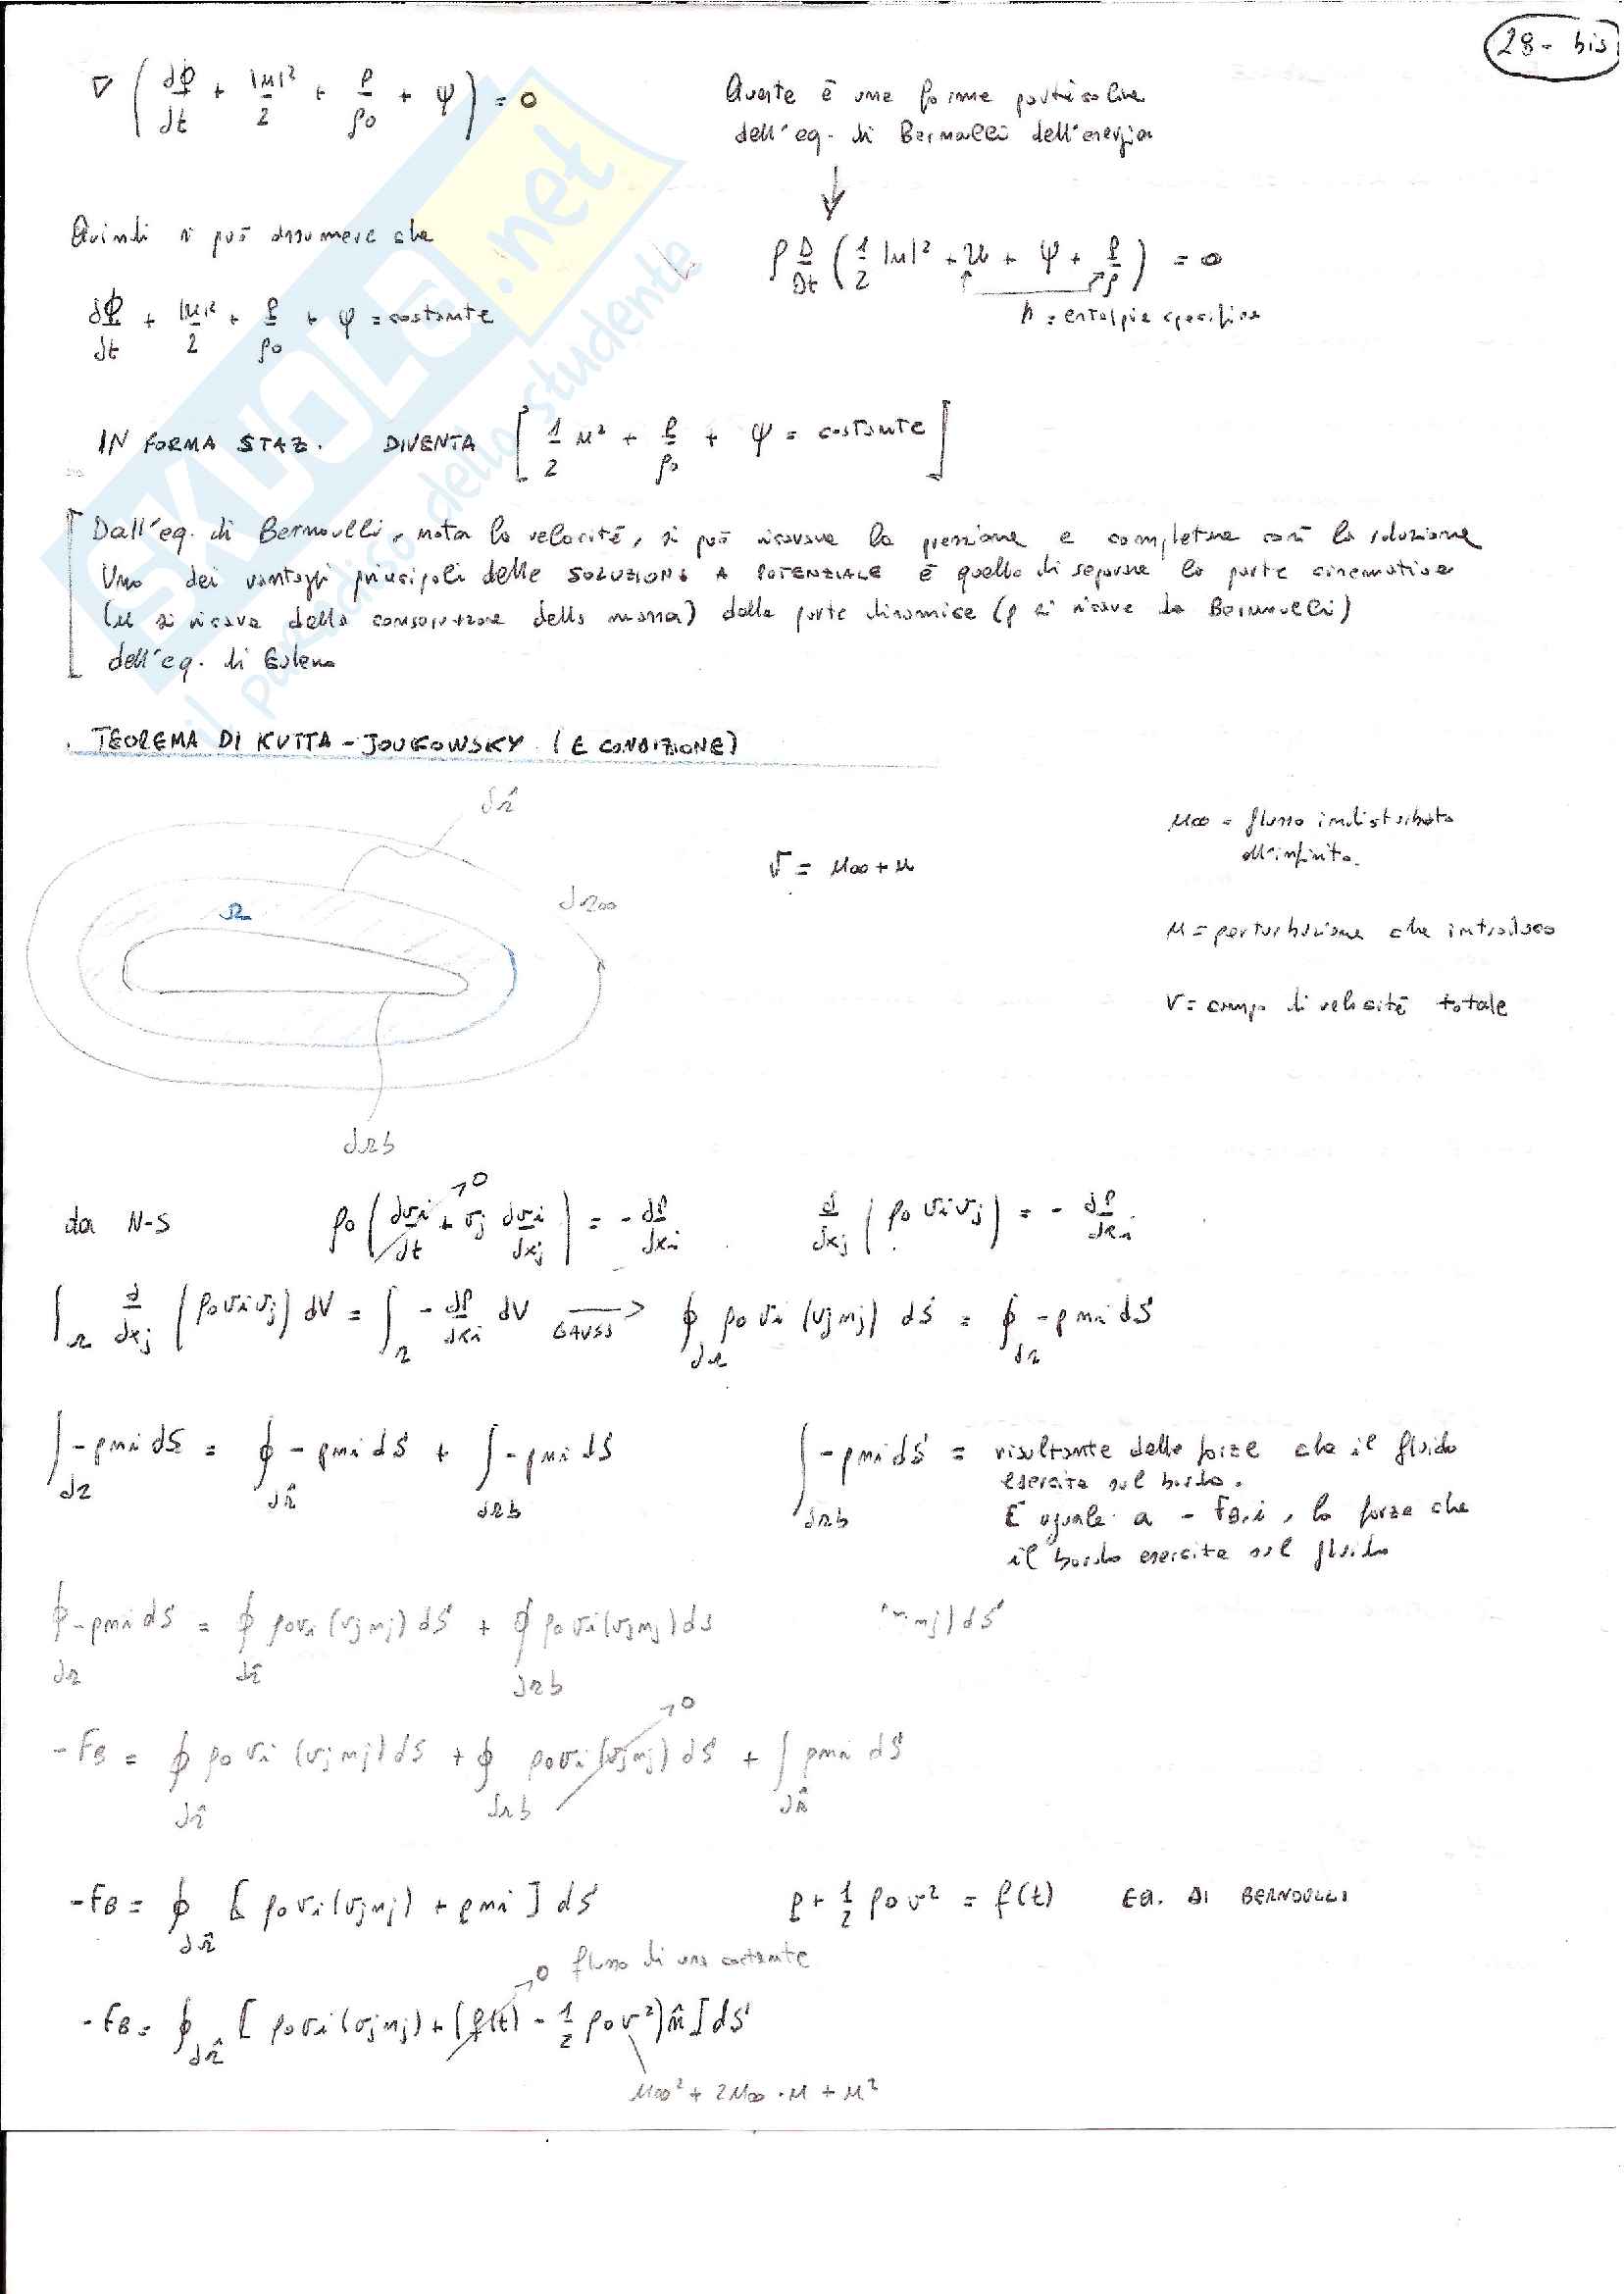 28-bis
∇ (∂φ/∂t + |u|²/2 + p/ρ0 + ψ) = 0
Questa è una forma particolare
dell'eq. di Bernoulli dell'energia
↓
Quindi si può assumere che
ρ D/Dt (1/2 |u|² + U + ψ + p/ρ) = 0
h = entalpia specifica
∂φ/∂t + |u|²/2 + p/ρ0 + ψ = costante
IN FORMA STAZ. DIVENTA [1/2 u² + p/ρ0 + ψ = costante]
Dall'eq. di Bernoulli, nota la velocità, si può ricavare la pressione e completare così la soluzione
Uno dei vantaggi principali delle SOLUZIONI A POTENZIALE è quello di separare la parte cinematica
(u si ricava dalla conservazione della massa) dalla parte dinamica (p si ricava da Bernoulli)
dell'eq. di Eulero
. TEOREMA DI KUTTA-JOUKOWSKY (E CONDIZIONE)
∂Ω̂
u∞ = flusso indisturbato
all'infinito.
v = u∞ + u
∂Ω∞
Ω
u = perturbazione che introduco
v = campo di velocità totale
∂Ωb
da N-S ρ0 (∂vi/∂t + vj ∂vi/∂xj) = - ∂p/∂xi ∂/∂xj (ρ0 vi vj) = - ∂p/∂xi
→0
∫Ω ∂/∂xj (ρ0 vi vj) dV = ∫Ω - ∂p/∂xi dV GAUSS → ∮∂Ω ρ0 vi (vj nj) dS = ∮∂Ω - p ni dS
∫∂Ω - p ni dS = ∮∂Ω̂ - p ni dS + ∫∂Ωb - p ni dS
∫∂Ωb - p ni dS = risultante delle forze che il fluido
esercita sul bordo.
È uguale a - FB,i, la forza che
il bordo esercita sul fluido
∮∂Ω - p ni dS = ∮∂Ω̂ ρ0 vi (vj nj) dS + ∮∂Ωb ρ0 vi (vj nj) dS
nj) dS
- FB = ∮∂Ω̂ ρ0 vi (vj nj) dS + ∮∂Ωb ρ0 vi (vj nj) dS + ∫∂Ω̂ p ni dS
→0
- FB = ∮∂Ω̂ [ρ0 vi (vj nj) + p ni] dS p + 1/2 ρ0 v² = f(t) EQ. DI BERNOULLI
→0 flusso di una costante
- FB = ∮∂Ω̂ [ρ0 vi (vj nj) + (f(t) - 1/2 ρ0 v²) n̂] dS
u∞² + 2u∞ · u + u²
SKUOLA.net
il paradiso dello studente